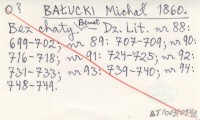 O? BAŁUCKI Michał 1860.
Bez chaty. Dramat Dz. Lit. nr 88:
699-702; nr 89: 707-709; nr 90:
716-718; nr 91: 724-725; nr 92:
731-733; nr 93: 739-740; nr 94:
748-749.